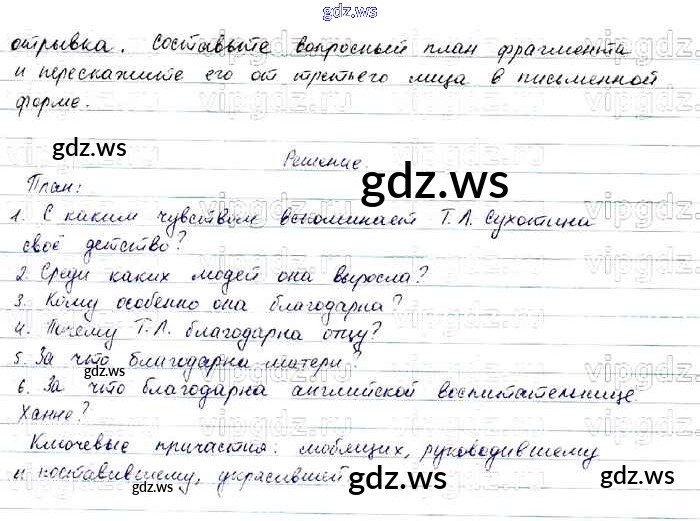 gdz.ws
отрывка. Составьте вопросный план фрагмента
и перескажите его от третьего лица в письменной
форме.
gdz.ws
Решение.
gdz.ws
План:
1. С каким чувством вспоминает Т.Л. Сухотина
своё детство?
2. Среди каких людей она выросла?
3. Кому особенно она благодарна?
4. Почему Т.Л. благодарна отцу?
5. За что благодарна матери?
6. За что благодарна английской воспитательнице
Ханне?
Ключевые причастия: любящих, руководившему
и поставившему, украсившей.
gdz.ws gdz.ws gdz.ws